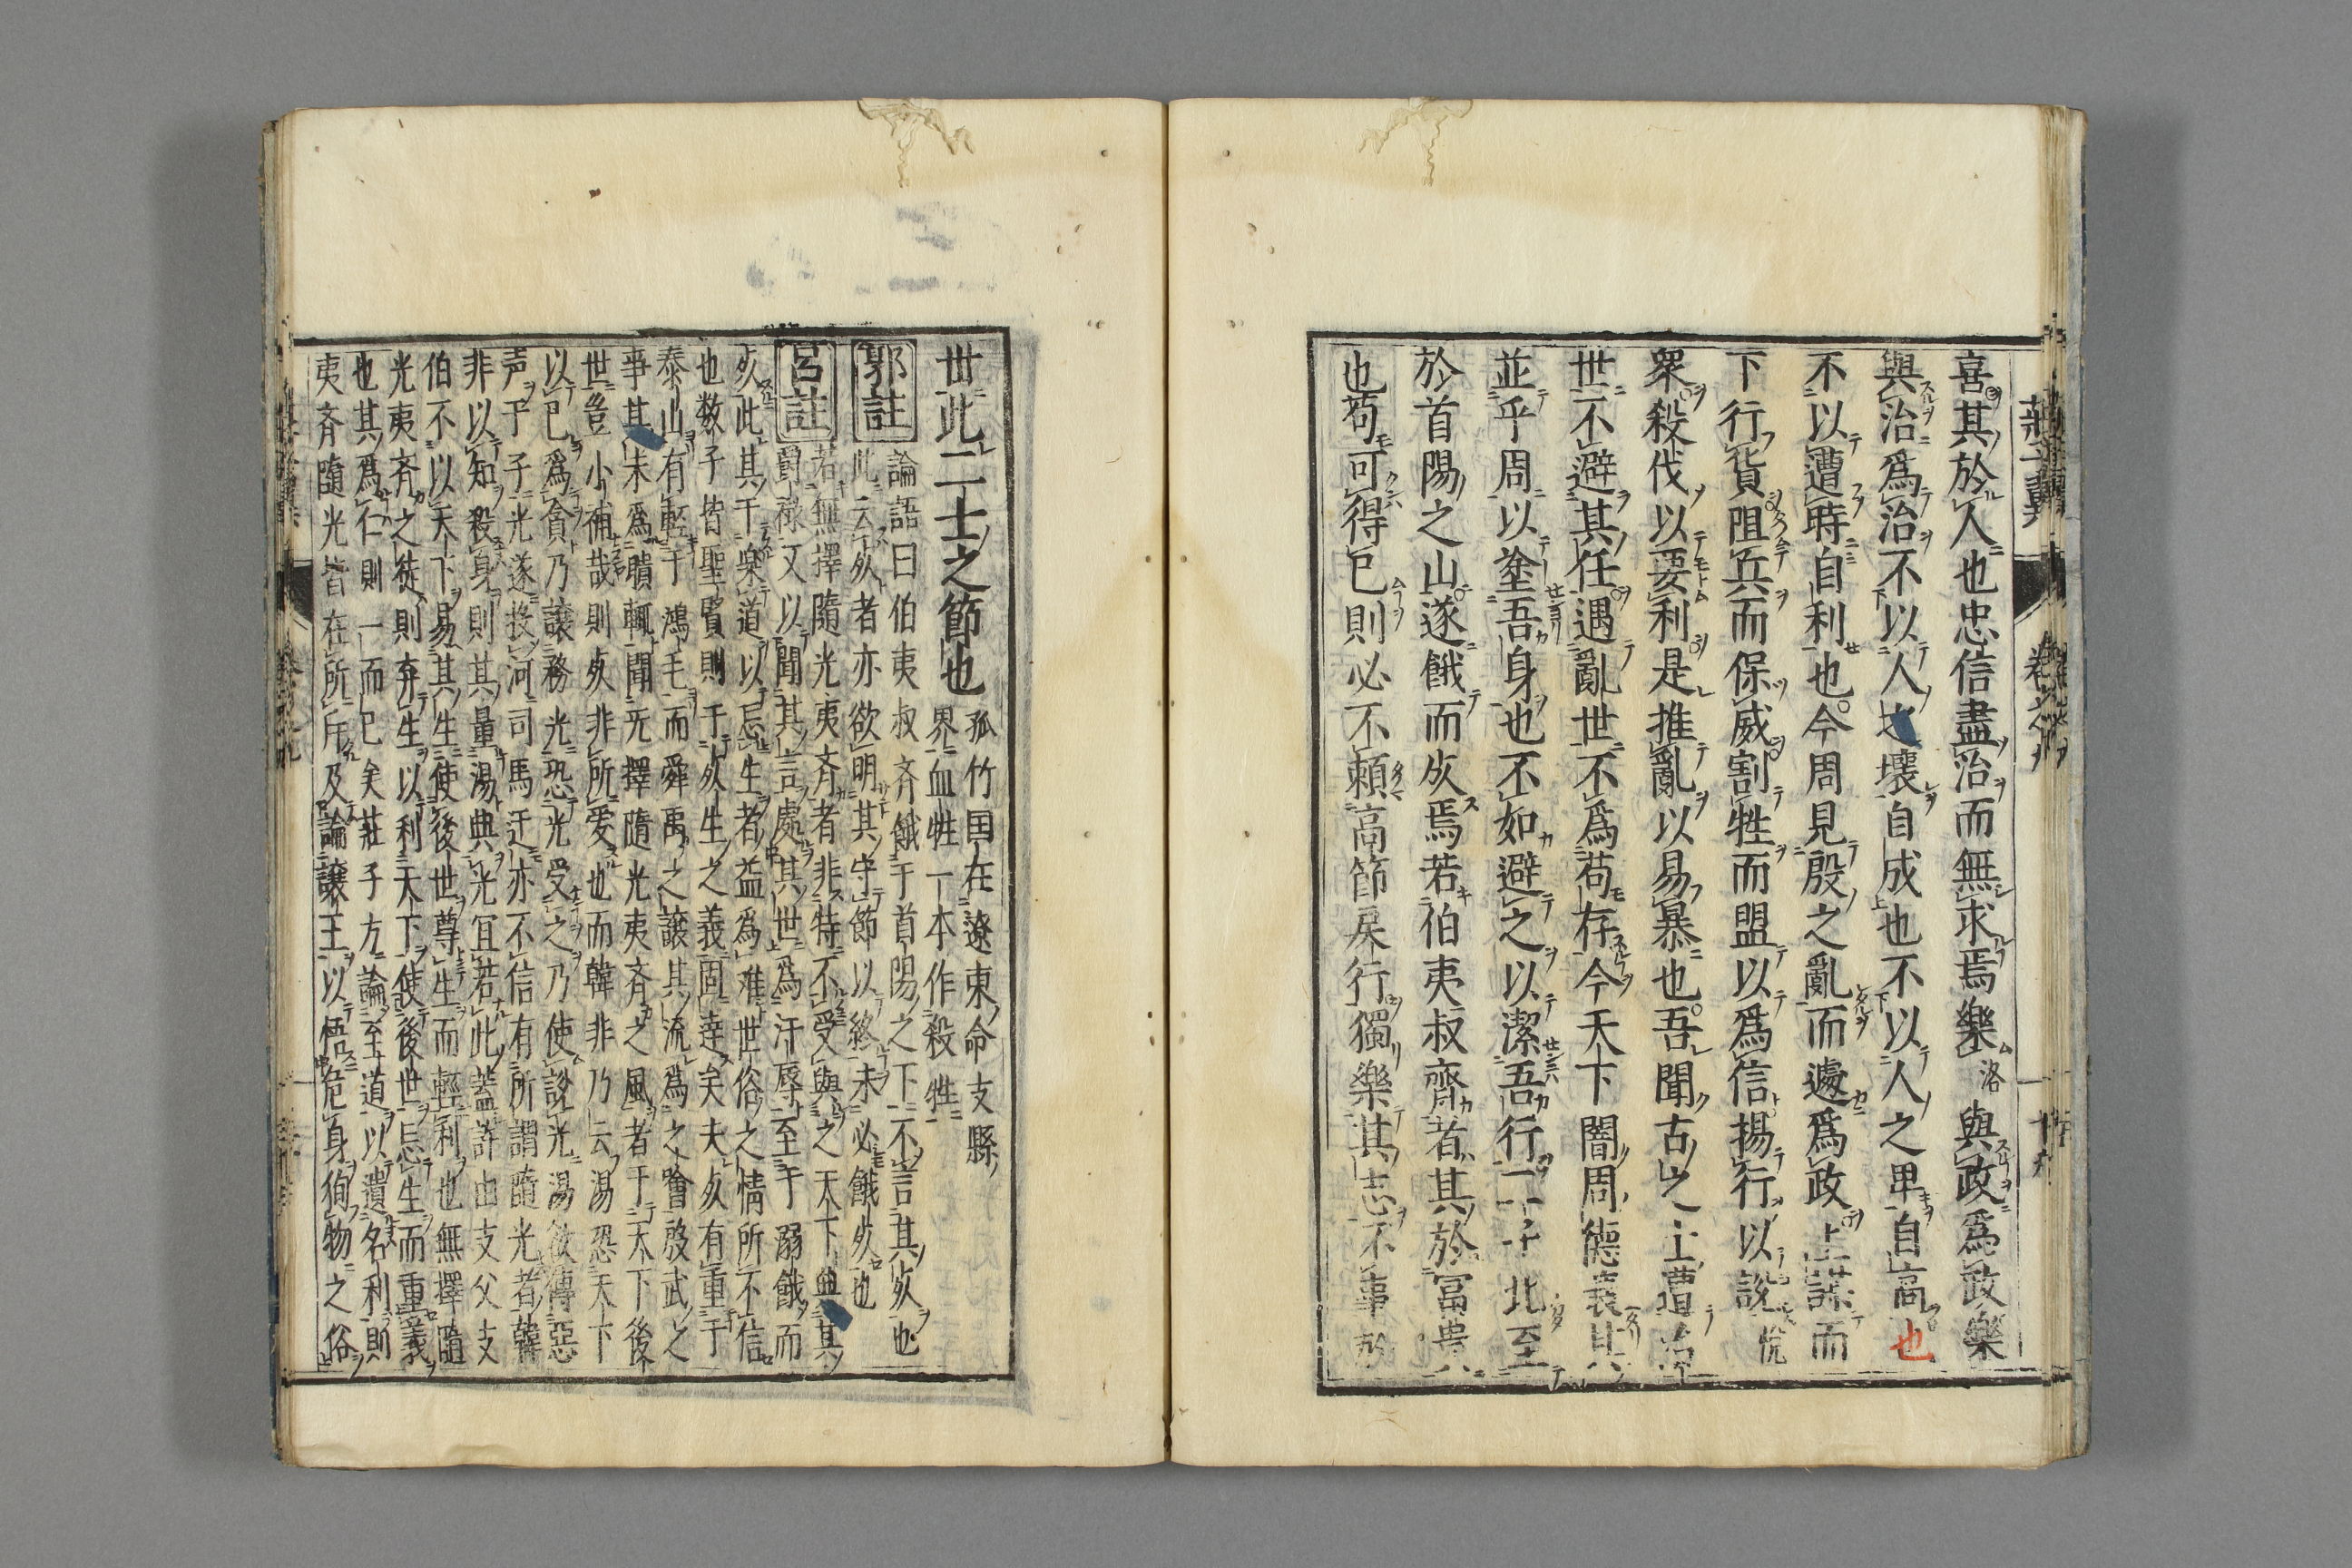 喜其於人也忠信盡治而無求焉樂洛與政爲政樂
與治爲治不以人之壞自成也不以人之卑自高也
不以遭時自利也今周見殷之亂而遽爲政上謀而
下行貨阻兵而保威割牲而盟以爲信揚行以說悅
衆殺伐以要利是推亂以易暴也吾聞古之士遭治
世不避其任遇亂世不爲苟存今天下闇周德衰其
並乎周以塗吾身也不如避之以潔吾行二子北至
於首陽之山遂餓而死焉若伯夷叔齊者其於富貴
也苟可得已則必不賴高節戾行獨樂其志不事於
世此二士之節也
孤竹国在遼東命支縣
界血牲一本作殺牲
郭註
論語曰伯夷叔齐餓于首陽之下不言其死也
此云死者亦欲明其守節以終未必餓死也
呂註
若無擇隨光夷斉者非特不受與之天下與其
爵禄又以聞其言處其世爲汙辱至于溺餓而
死此其于樂道以忘生者益爲难世俗之情所不信
也数子皆聖賢則于死生之義固達矣夫死有重于
泰山有輕于鴻毛而舜禹之讓其流爲之噲殷武之
事其末爲聵輒聞无擇隨光夷斉之風者于天下後
世豈小補哉則死非所爱也而韓非乃云湯恐天下
以已爲貪乃讓務光恐光受之乃使說光湯欲傳惡
声于子光遂投河司馬迁亦不信有所謂隨光者韓
非以知殺身則其量湯與光宜若此蓋許由支父支
伯不以天下易其生使後世尊生而輕利也無擇隨
光夷斉之徒則弃生以利天下使後世忘生而重義
也其爲仁則一而已矣莊子方論至道以遺名利則
夷斉隨光皆在所斥及論讓王以悟危身狥物之俗